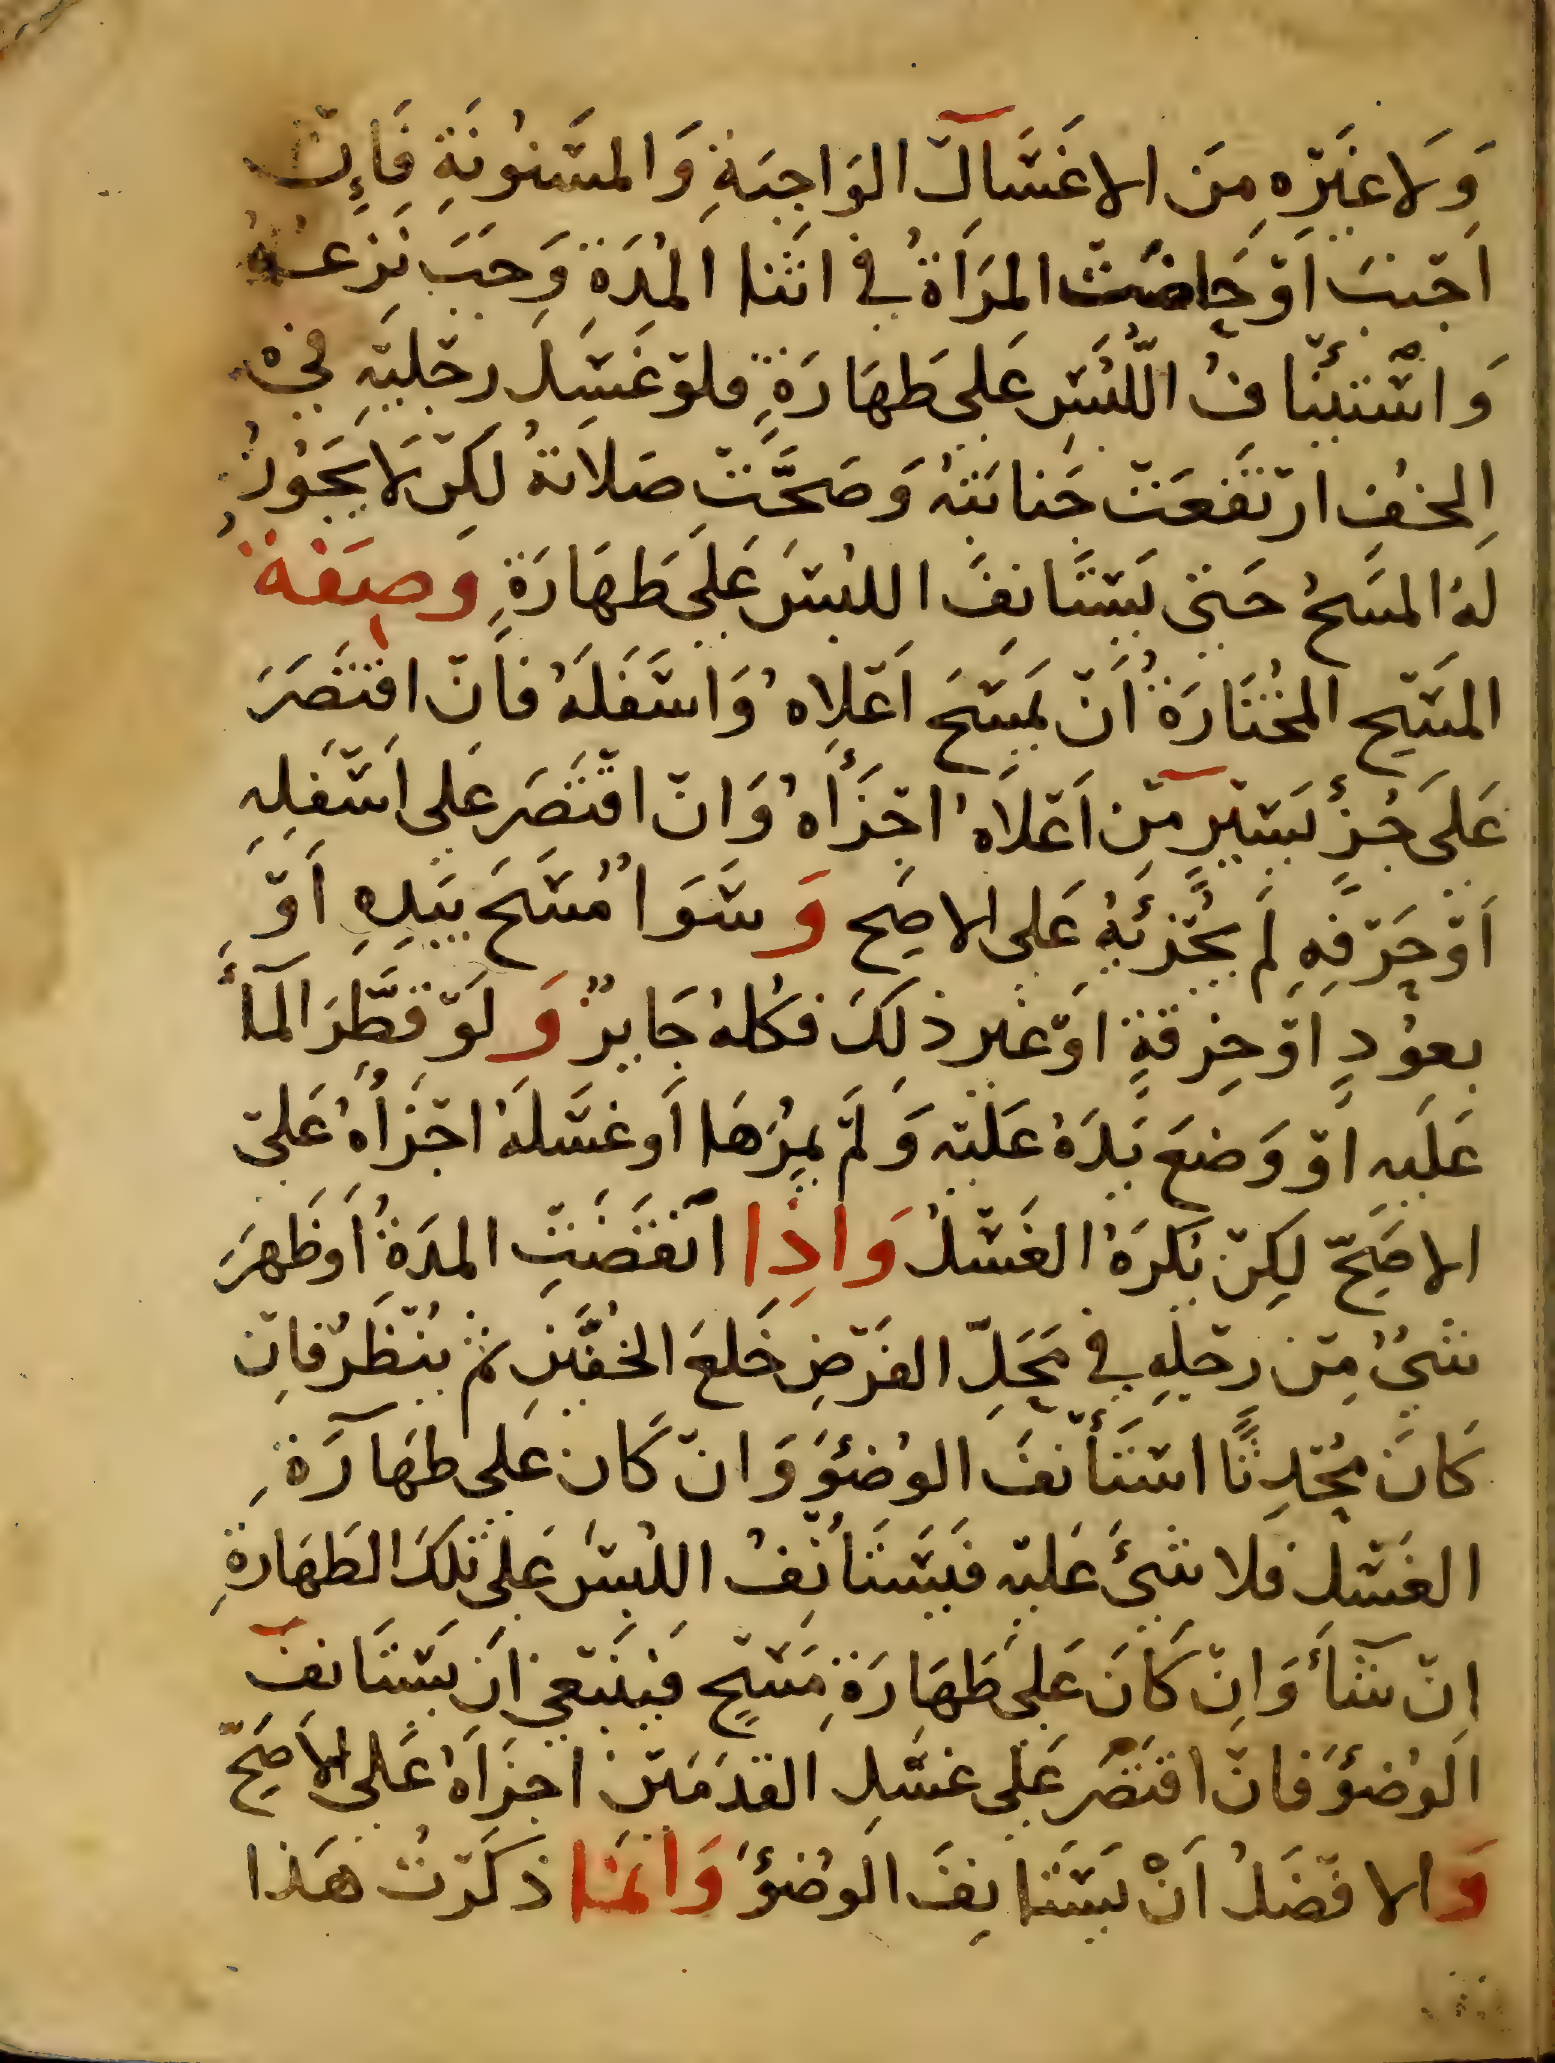 وَلَا غَيْرِهِ مِنَ الاغْسَالِ الوَاجِبَةِ وَالمسْنُونَةِ فَإِنْ
اَجْنبَ اَوْ حَاضَتْ المرَاَةُ فى اثَنا المُدَةِ وَجَبَ نَزعُهُ
وَاسْتئْنَافُ اللُّبْسِ عَلى طَهَارَةٍ فلوْ غَسَلَ رجْليْهِ فى
الخفِ ارْتفَعَتْ جَنابَتهُ وَصَحَّتْ صَلَاتهُ لَكِنْ لَا يَجُوزُ
لَهُ المسَحُ حَتى يَسْتَانفَ اللبْسَ عَلَى طَهَارَةٍ وَصِفَةُ
المَسْحِ المخُتَارَةُ اَنْ يَمسَحَ اَعْلاهُ وَاسْفَلَهُ فَاِنْ اقتَصَرَ
عَلَى جُزءٍ يَسيْرٍ مِّنْ اَعْلَاهُ اجْزَأهُ وَانْ اقْتَصَرَ عَلى اَسْفَلِهِ
اَوْ حَرْفِهِ لَم يُجْزئهُ عَلى الاصَحِ وَسَوَا مَسَحَ بيَدِهِ اَوْ
بعوُدٍ اوْ خِرقةٍ اوْ غير ذلكَ فكلهُ جَايزٌ وَلَوْ قَطَّرَ المَآءَ
عَلَيهِ اوْ وَضعَ يَدَهُ عَليْهِ وَلَمْ يمِرُهَا اَو غسَلَهُ اجْزَأهُ عَلىْ
الاصَحِّ لَكِنْ يَكرَهُ الغَسْلُ وَاذِا انقَضَتِ المدَةُ اَو ظَهَرَ
شىْءُ مِنْ رجْلهِ فى مَحَلِّ الفَرْضِ خَلعَ الخُفَّيْنِ ثم يُنْظَرُ فاِنْ
كَانَ مُحْدِثًا اسْتَأْنفَ الوُضؤَ وَانْ كَان عَلى طهَآرَةِ
الغَسْلِ فَلا شئَ عَليْهِ فيَسْتَأنِفُ اللبْسَ عَلى تلكَ الطَهَارةِ
اِنْ شَآءَ وَاِنْ كَانَ عَلى طَهَارَةِ مَسْحٍ فينبَغى اَن يَسْتَانفَ
الوُضؤَ فَانْ اقتَصَرَ عَلى غسْلِ القدَمَيْن اجزَاَهُ عَلى الاَصَحِّ
وَالافْضَلُ اَنْ يَسْتَانِفَ الوُضؤَ وَانمَا ذكَرْتُ هَذا